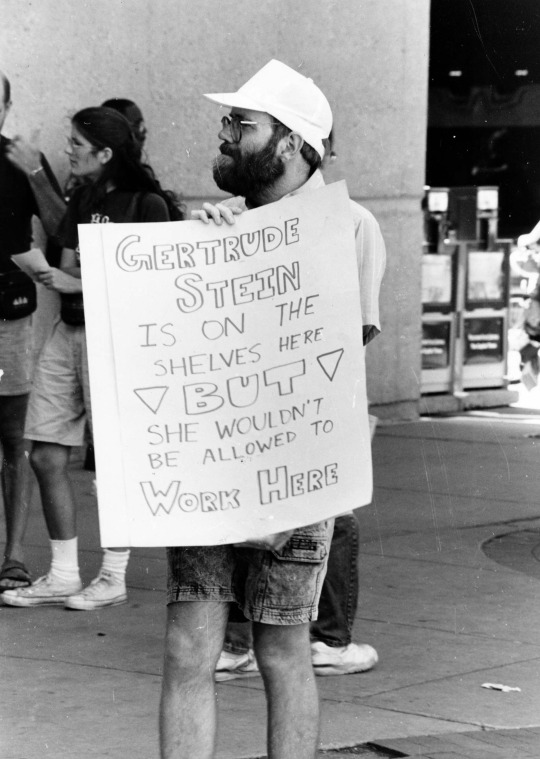 GERTRUDE
STEIN
IS ON THE
SHELVES HERE
BUT
SHE WOULDN'T
BE ALLOWED TO
WORK HERE